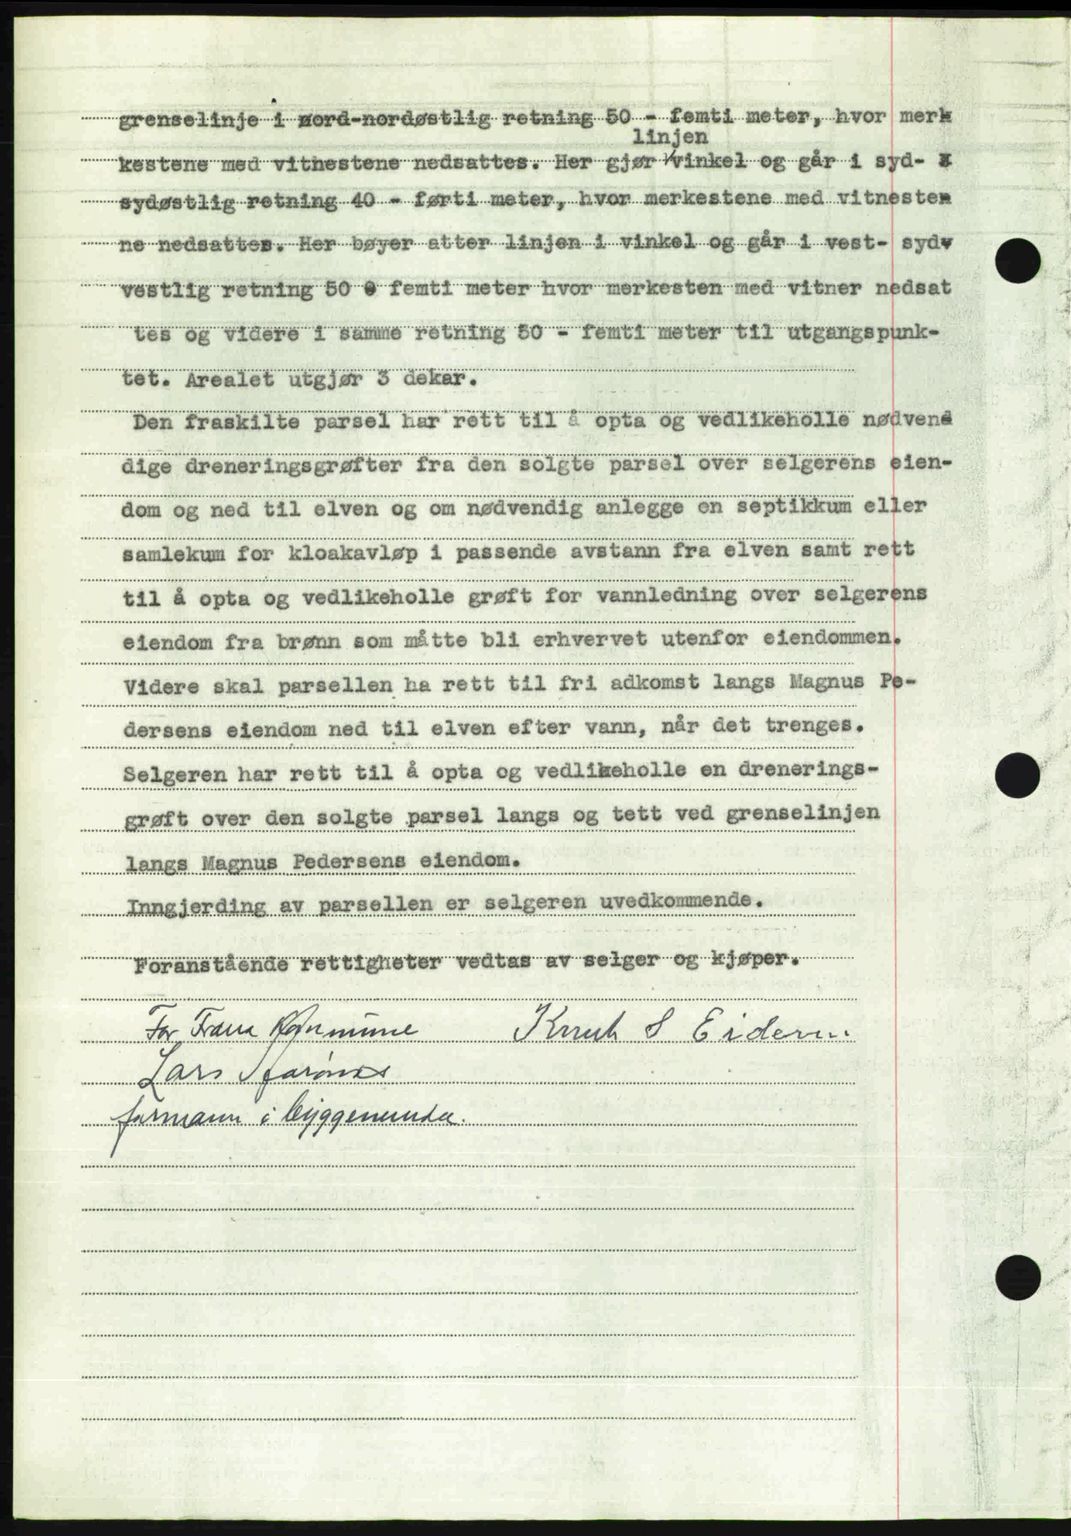 grenselinje i nord-nordøstlig retning 50 - femti meter, hvor merk
linjen
kestene med vithestene nedsattes. Her gjør vinkel og går i syd-
sydøstlig retning 40 - førti meter, hvor merkestene med vitnesten
ne nedsattes. Her bøyer atter linjen i vinkel og går i vest- sydv
vestlig retning 50 femti meter hvor merkesten med vitner nedsat
tes og videre i samme retning 50 - femti meter til utgangspunk-
tet. Arealet utgjør 3 dekar.
Den fraskilte parsel har rett til å opta og vedlikeholle nødvend
dige dreneringsgrøfter fra den solgte parsel over selgerens eien-
dom og ned til elven og om nødvendig anlegge en septikkum eller
samlekum for kloakavløp i passende avstann fra elven samt rett
til å opta og vedlikeholle grøft for vannledning over selgerens
eiendom fra brønn som måtte bli erhvervet utenfor eiendommen.
Videre skal parsellen ha rett til fri adkomst langs Magnus Pe-
dersens eiendom ned til elven efter vann, når det trenges.
Selgeren har rett til å opta og vedlikeholle en drenerings-
grøft over den solgte parsel langs og tett ved grenselinjen
langs Magnus Pedersens eiendom.
Inngjerding av parsellen er selgeren uvedkommende.
Foranstående rettigheter vedtas av selger og kjøper.
For Fræna Kommune Knut S Eidem
Lars
formann i byggenemnda.